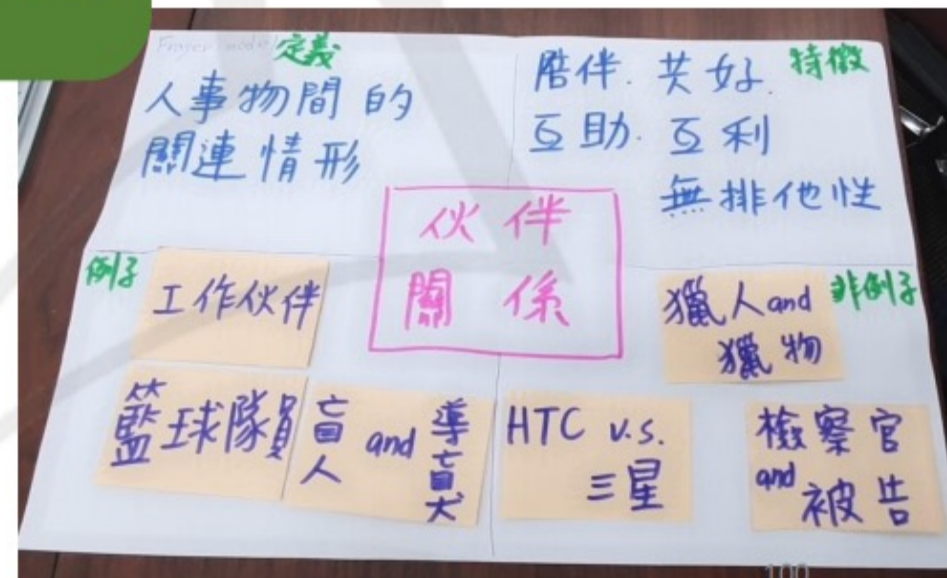 Frayer model 定義
人事物間的
關連情形
特徵
陪伴. 共好.
互助. 互利
無排他性
伙伴
關係
例子
工作伙伴
籃球隊員
盲人 and 導盲犬
非例子
獵人 and
獵物
HTC v.s.
三星
檢察官
and
被告
100